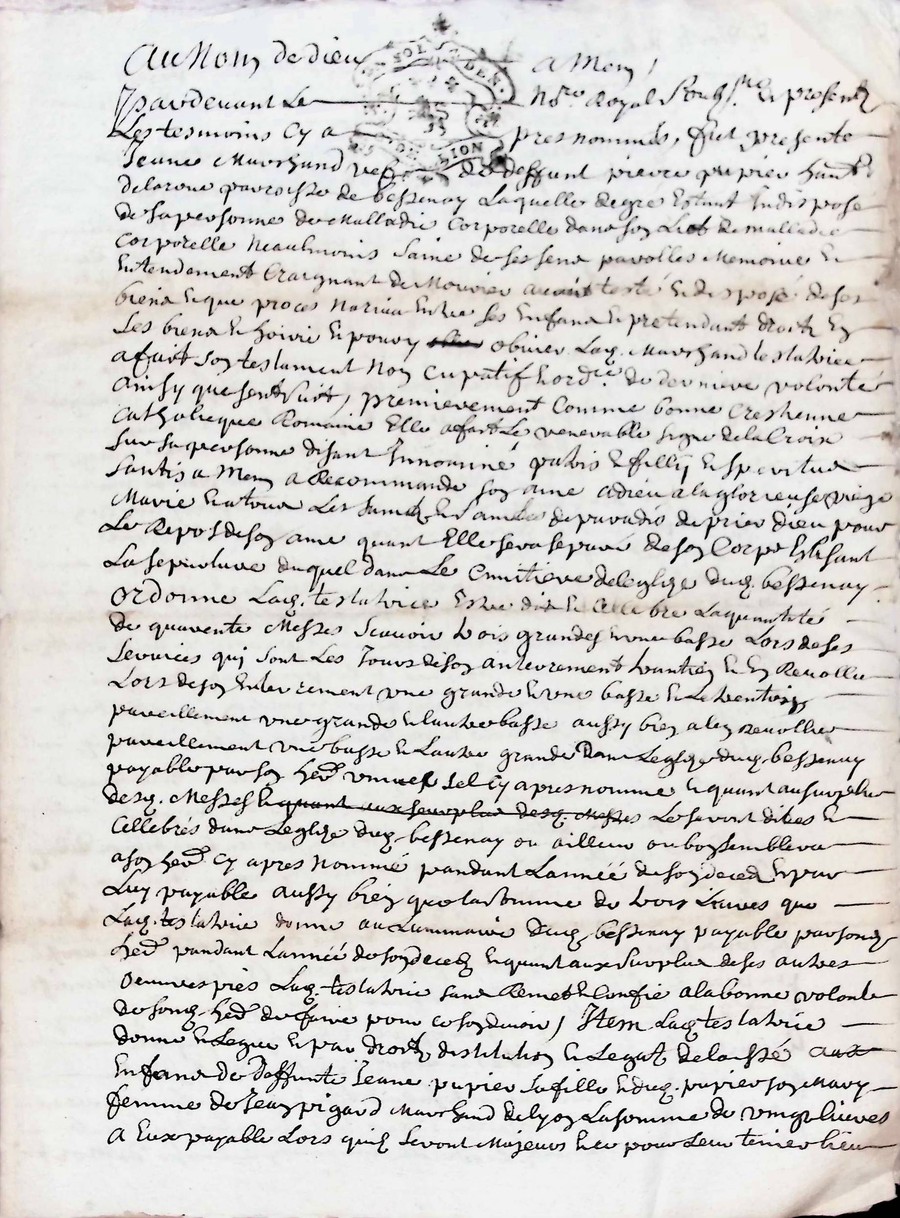 Au Nom de dieu
amen /
Pardevant Le No.re Royal Soubs.né Et presents
Les tesmoins Cy a pres nommés, fut presente
Jeane Marchand vefve de deffunt pierre pupier hant
delaroue parroisse de bessenay Laquelle de gre Estant Indispose
de sa personne de Malladie Corporelle dans son Lict de malledie
Corporelle Neaulmoins Saine de ses sens parolles Memoire Et
Entendement Craignant de Mourir avant testé Et disposé de ses
biens Et que proces Naric Entre Ses Enfans Et pretendant droitz En
Les biens Et hoirie Et pour y obvier Laq. Marchand testatrice
a fait Son testament Non Cupatif Et ord.re de derniere volonté
ainsy que sensuit, premierement Comme bonne Crestienne
Catholicque Romaine Elle a fait Le venerable Signe de la Croix
Sur sa personne disant Innominé patris Et filly Et spiritus
Santis a Men a Recommandé son ame a dieu a la glorieuse vierge
Marie Et a tous Les Saincts Et Sainctes de paradis de prier dieu pour
Le Repos de son ame quant Elle sera separé de son Corps Eslisant
La sepulture duquel dans Le Cimitiere de leglize dudq. bessenay
ordonne Laq. testatrice Estre dit Et Cellebre La quantité
de quarente Messes Scavoir trois grandes Et une basse Lors de ses
Services quj sont Les Jours de son anterrement trantin Et En Revollu
Lors de son Enterrement une grande Et une basse Et Le trentin
pareillement une grande Et lautre basse aussy bien a len revollu
pareillement une basse Et Lautre grande Dans Leglize dudq. bessenay
payable par son her. unniversel Cy apres nommé Et quant au surplus
desq. Messes Et quant aux surplus desq. Messes Le seront dittes Et
Cellebrés dans Leglize dudq. bessenay ou ailleurs ou bon semblera
a son her. Cy apres Nommé pandant Lannée de son deces Et par
Luy payable aussy bien que la somme de trois Livres que
Laq. testatrice donne au Luminaire dudq. bessenay payable par sond.
her. pandant Lannée de son deces Et quant aux Surplus de ses autres
oeuvres pies Laq. testatrice sans Remet Et Confie a la bonne volonte
de sond. her. de faire pour ce son devoir / Item Laq. testatrice
donne Et Legue Et par droitz distitution Et Legat delaissé aux
Enfans de Deffunte Jeane pupier sa fille Et dudq. pupier son Mary
femme de Jean pigard Marchand de Lyon La somme de vingt livres
a Eux payable Lors quilz Seront Majeurs Et ce pour Leur tenir lieu